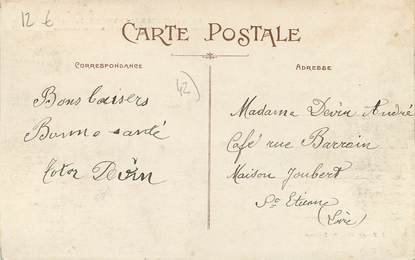 12 €
CARTE POSTALE
CORRESPONDANCE
ADRESSE
42
Bons baisers
Bonne santé
Totor Devin
Madame Devin André
Café rue Barrain
Maison Joubert
St Etienne
(Loire)